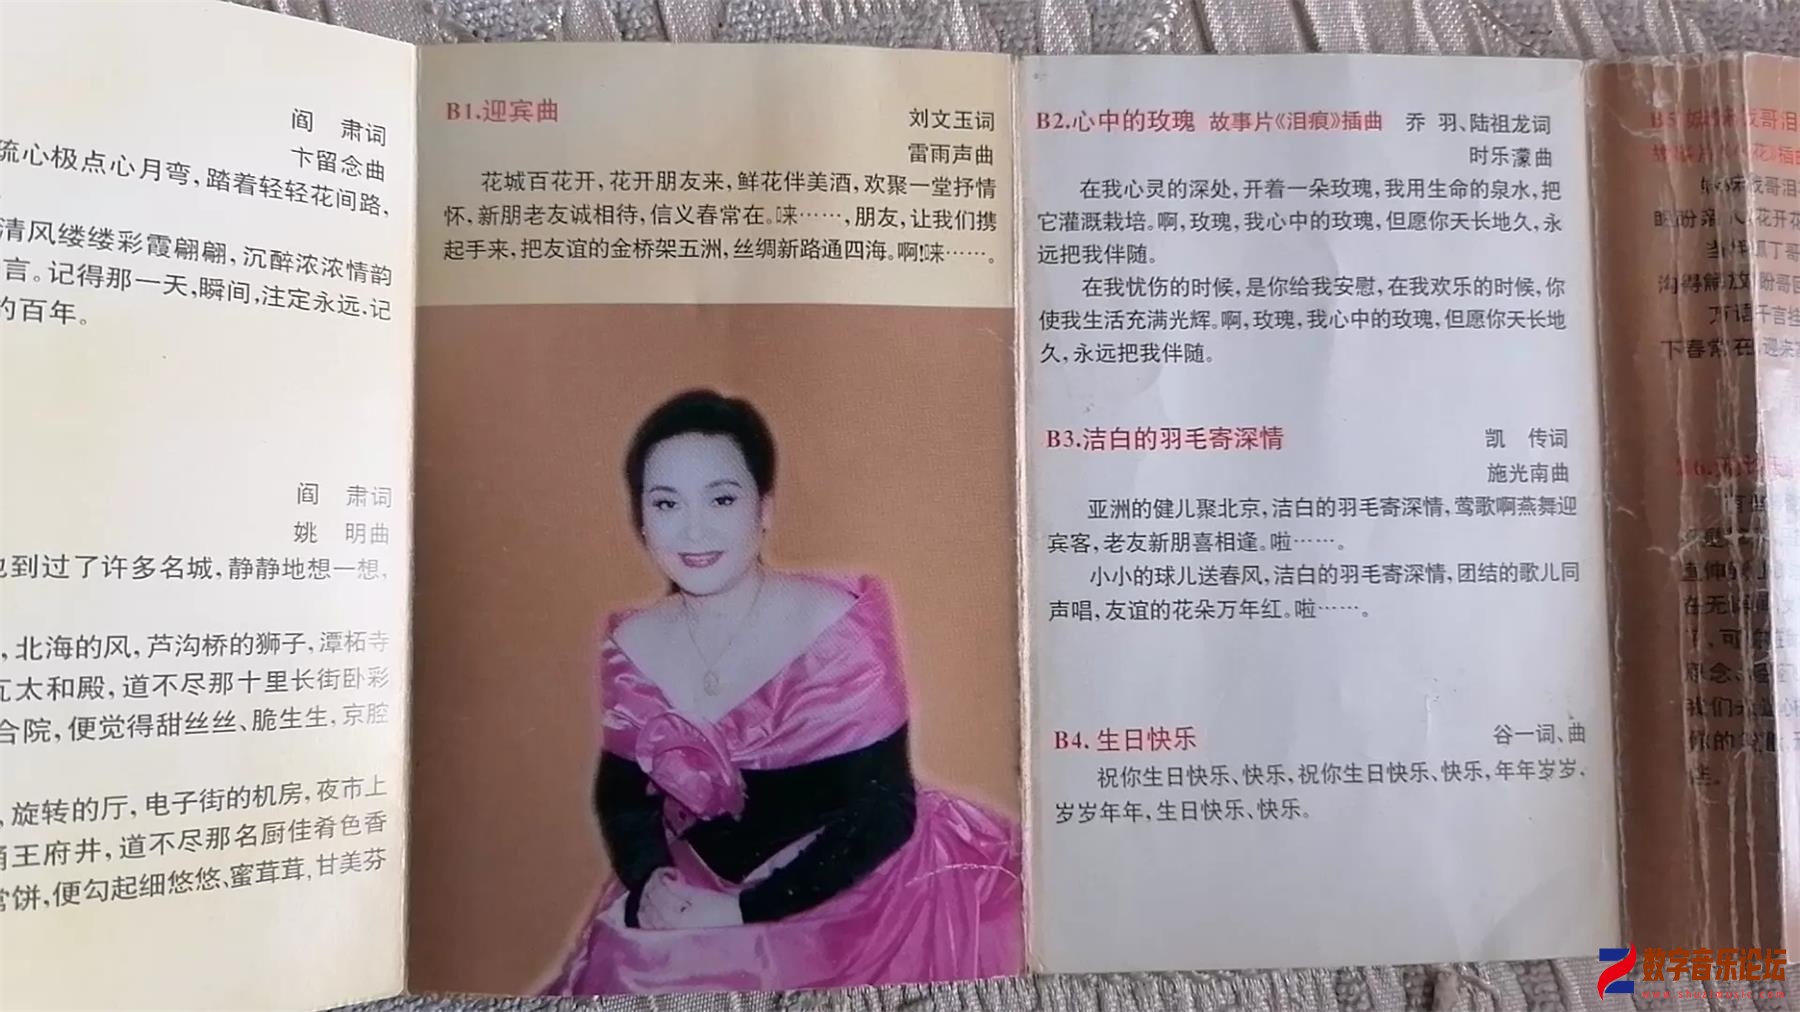 阎 肃词
卞留念曲
疏心极点心月弯,踏着轻轻花间路,
清风缕缕彩霞翩翩,沉醉浓浓情韵
言。记得那一天,瞬间,注定永远.记
的百年。
阎 肃词
姚 明曲
也到过了许多名城,静静地想一想,
,北海的风,芦沟桥的狮子,潭柘寺
瓦太和殿,道不尽那十里长街卧彩
合院,便觉得甜丝丝、脆生生,京腔
,旋转的厅,电子街的机房,夜市上
涌王府井,道不尽那名厨佳肴色香
常饼,便勾起细悠悠、蜜茸茸,甘美芬
B1.迎宾曲
刘文玉词
雷雨声曲
花城百花开,花开朋友来,鲜花伴美酒,欢聚一堂抒情
怀,新朋老友诚相待,信义春常在。唻……,朋友,让我们携
起手来,把友谊的金桥架五洲,丝绸新路通四海。啊!唻……。
B2.心中的玫瑰 故事片《泪痕》插曲 乔 羽、陆祖龙词
时乐濛曲
在我心灵的深处,开着一朵玫瑰,我用生命的泉水,把
它灌溉栽培。啊,玫瑰,我心中的玫瑰,但愿你天长地久,永
远把我伴随。
在我忧伤的时候,是你给我安慰,在我欢乐的时候,你
使我生活充满光辉。啊,玫瑰,我心中的玫瑰,但愿你天长地
久,永远把我伴随。
B3.洁白的羽毛寄深情
凯 传词
施光南曲
亚洲的健儿聚北京,洁白的羽毛寄深情,莺歌啊燕舞迎
宾客,老友新朋喜相逢。啦……。
小小的球儿送春风,洁白的羽毛寄深情,团结的歌儿同
声唱,友谊的花朵万年红。啦……。
B4. 生日快乐
谷一词、曲
祝你生日快乐、快乐,祝你生日快乐、快乐,年年岁岁,
岁岁年年,生日快乐、快乐。
数字音乐论坛